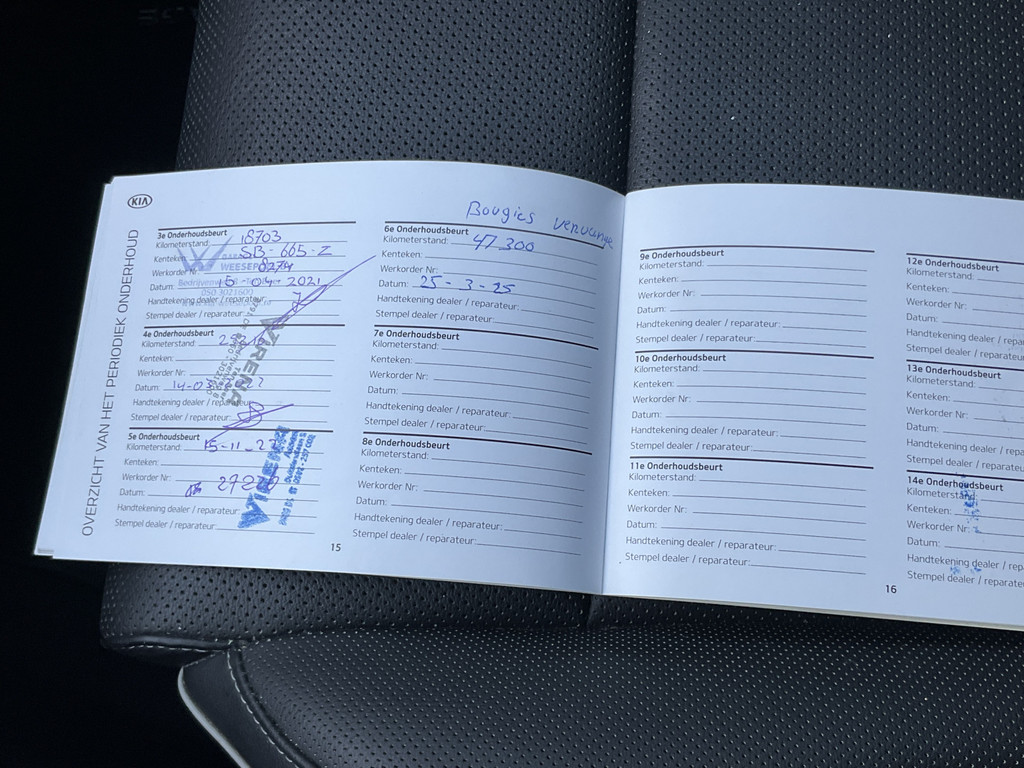 KIA
OVERZICHT VAN HET PERIODIEK ONDERHOUD
3e Onderhoudsbeurt
Kilometerstand: 18703
Kenteken: SB-665-Z
Werkorder Nr: 8274
Datum: 15-04-2021
Handtekening dealer / reparateur:
Stempel dealer / reparateur:
4e Onderhoudsbeurt
Kilometerstand:
Kenteken:
Werkorder Nr:
Datum: 14-03
Handtekening dealer / reparateur:
Stempel dealer / reparateur:
5e Onderhoudsbeurt
Kilometerstand: 15-11-
Kenteken:
Werkorder Nr:
Datum:
Handtekening dealer / reparateur:
Stempel dealer / reparateur:
15
Bougies
6e Onderhoudsbeurt
Kilometerstand: 47300
Kenteken:
Werkorder Nr:
Datum: 25-3-25
Handtekening dealer / reparateur:
Stempel dealer / reparateur:
7e Onderhoudsbeurt
Kilometerstand:
Kenteken:
Werkorder Nr:
Datum:
Handtekening dealer / reparateur:
Stempel dealer / reparateur:
8e Onderhoudsbeurt
Kilometerstand:
Kenteken:
Werkorder Nr:
Datum:
Handtekening dealer / reparateur:
Stempel dealer / reparateur:
9e Onderhoudsbeurt
Kilometerstand:
Kenteken:
Werkorder Nr:
Datum:
Handtekening dealer / reparateur:
Stempel dealer / reparateur:
10e Onderhoudsbeurt
Kilometerstand:
Kenteken:
Werkorder Nr:
Datum:
Handtekening dealer / reparateur:
Stempel dealer / reparateur:
11e Onderhoudsbeurt
Kilometerstand:
Kenteken:
Werkorder Nr:
Datum:
Handtekening dealer / reparateur:
Stempel dealer / reparateur:
16
12e Onderhoudsbeurt
Kilometerstand:
Kenteken:
Werkorder Nr:
Datum:
Handtekening dealer /
Stempel dealer /
13e Onderhoudsbeurt
Kilometerstand:
Kenteken:
Werkorder Nr:
Datum:
Handtekening dealer /
Stempel dealer /
14e Onderhoudsbeurt
Kilometerstand:
Kenteken:
Werkorder Nr:
Datum:
Handtekening dealer /
Stempel dealer /